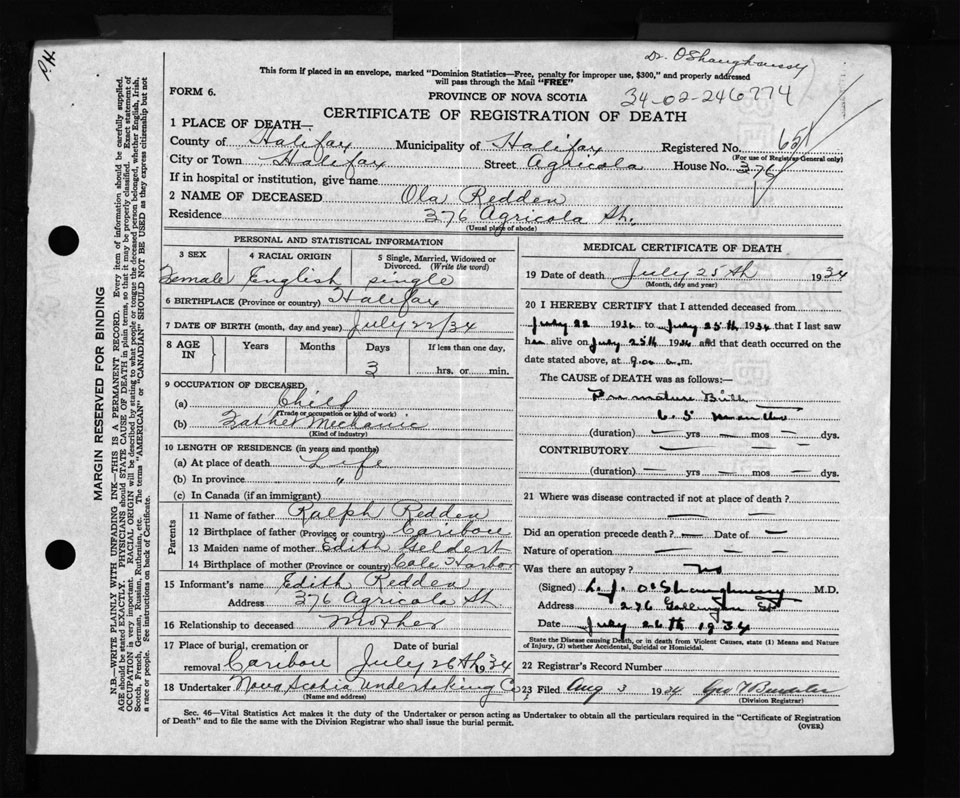 P.H.
Dr. O'Shaughnessy
This form if placed in an envelope, marked "Dominion Statistics—Free, penalty for improper use, $300," and properly addressed
will pass through the Mail "FREE"
FORM 6.
PROVINCE OF NOVA SCOTIA
34-02-246774
CERTIFICATE OF REGISTRATION OF DEATH
1 PLACE OF DEATH—
County of Halifax Municipality of Halifax Registered No. 651
(For use of Registrar General only)
City or Town Halifax Street Agricola House No. 376
If in hospital or institution, give name
2 NAME OF DECEASED Ola Redden
Residence 376 Agricola St.
(Usual place of abode)
PERSONAL AND STATISTICAL INFORMATION
3 SEX 4 RACIAL ORIGIN 5 Single, Married, Widowed or
Divorced. (Write the word)
Female English single
6 BIRTHPLACE (Province or country) Halifax
7 DATE OF BIRTH (month, day and year) July 22/34
8 AGE IN Years Months Days If less than one day,
3 hrs. or min.
9 OCCUPATION OF DECEASED
(a) Child
(Trade or occupation or kind of work)
(b) Father Mechanic
(Kind of industry)
10 LENGTH OF RESIDENCE (in years and months)
(a) At place of death Life
(b) In province "
(c) In Canada (if an immigrant)
Parents
11 Name of father Ralph Redden
12 Birthplace of father (Province or country) Caribou
13 Maiden name of mother Edith Geldert
14 Birthplace of mother (Province or country) Cole Harbor
15 Informant's name Edith Redden
Address 376 Agricola St
16 Relationship to deceased Mother
17 Place of burial, cremation or Date of burial
removal Caribou July 26th 1934
18 Undertaker Nova Scotia Undertaking Co
(Name and address)
MEDICAL CERTIFICATE OF DEATH
19 Date of death July 25th 1934
(Month, day and year)
20 I HEREBY CERTIFY that I attended deceased from
July 22 1934 to July 25th 1934 that I last saw
her alive on July 25th 1934 and that death occurred on the
date stated above, at 9.00 a.m.
The CAUSE OF DEATH was as follows:—
Premature Birth
6.5 months
(duration) — yrs — mos — dys.
CONTRIBUTORY — —
(duration) — yrs. — mos. — dys.
21 Where was disease contracted if not at place of death?
— —
Did an operation precede death? — Date of —
Nature of operation — — —
Was there an autopsy? no
(Signed) L.J. O'Shaughnessy M.D.
Address 276 Gottingen St
Date July 26th 1934
State the Disease causing Death, or in death from Violent Causes, state (1) Means and Nature
of Injury, (2) whether Accidental, Suicidal or Homicidal.
22 Registrar's Record Number
23 Filed Aug 3 1934
(Division Registrar)
Sec. 46—Vital Statistics Act makes it the duty of the Undertaker or person acting as Undertaker to obtain all the particulars required in the "Certificate of Registration
of Death" and to file the same with the Division Registrar who shall issue the burial permit.
(OVER)
MARGIN RESERVED FOR BINDING
N.B.—WRITE PLAINLY WITH UNFADING INK—THIS IS A PERMANENT RECORD. Every item of information should be carefully supplied.
AGE should be stated EXACTLY. PHYSICIANS should STATE CAUSE OF DEATH in plain terms, so that it may be properly classified. Exact statement of
OCCUPATION is very important. RACIAL ORIGIN will be described by stating to what people or tongue the deceased person belonged, whether English, Irish,
Scotch, French, German, Russian, Ruthenian, etc. The terms "AMERICAN" or "CANADIAN" SHOULD NOT BE USED as they express citizenship but not
a race or people. See instructions on back of Certificate.